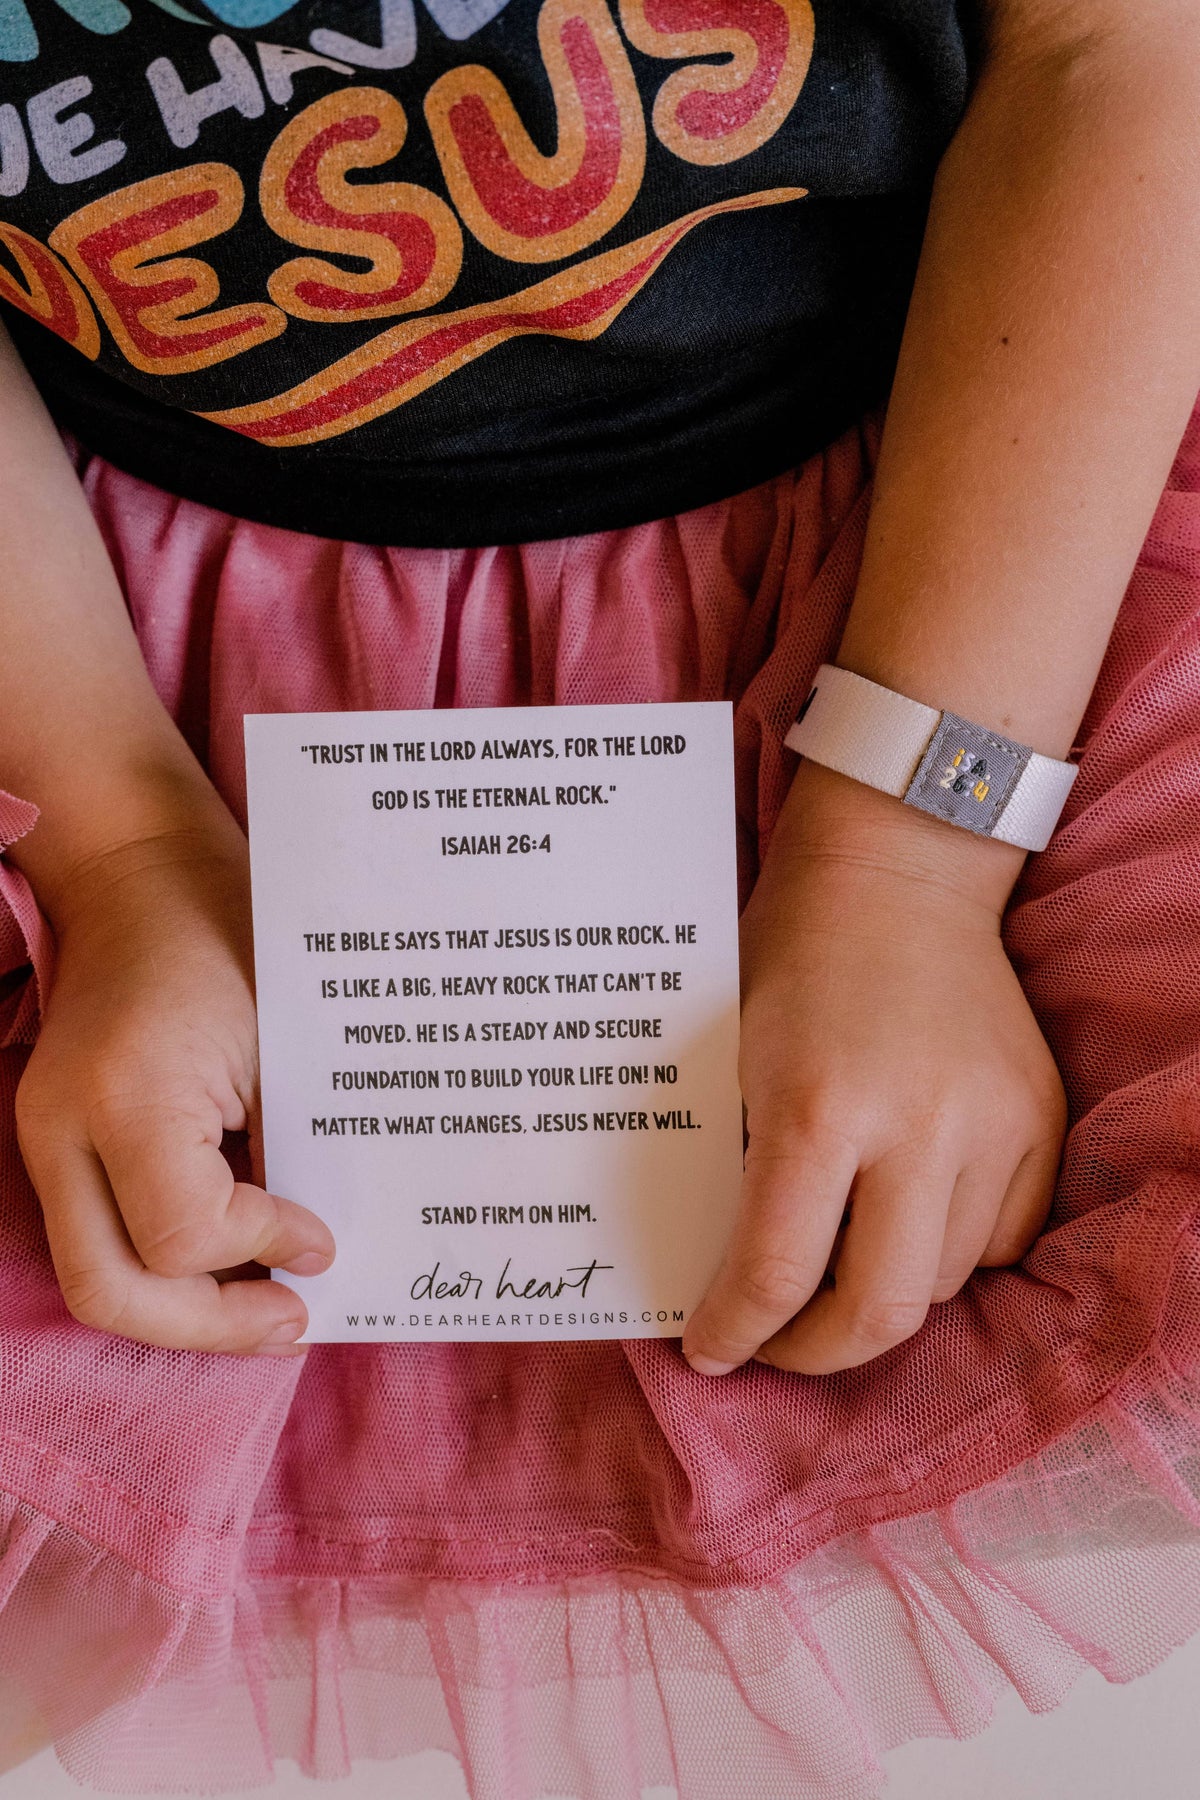 WE HAVE
JESUS
"TRUST IN THE LORD ALWAYS, FOR THE LORD
GOD IS THE ETERNAL ROCK."
ISAIAH 26:4
THE BIBLE SAYS THAT JESUS IS OUR ROCK. HE
IS LIKE A BIG, HEAVY ROCK THAT CAN'T BE
MOVED. HE IS A STEADY AND SECURE
FOUNDATION TO BUILD YOUR LIFE ON! NO
MATTER WHAT CHANGES, JESUS NEVER WILL.
STAND FIRM ON HIM.
dear heart
WWW.DEARHEARTDESIGNS.COM
isa.
26:4